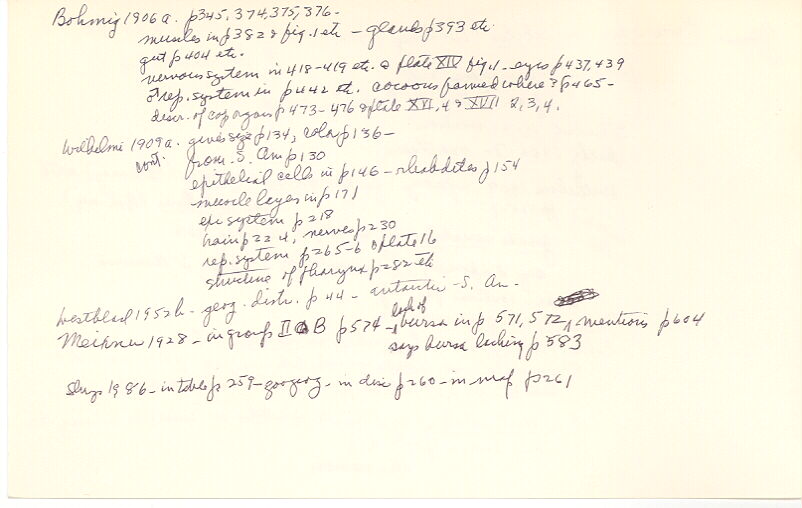 Bohmig 1906a. p345, 374, 375, 376-
muscles in p382 & fig. 1 etc - glands p393 etc
gut p404 etc.
nervous system in 418-419 etc. & plate XIV fig 1 - eyes p437, 439
rep. system in p442 etc. cocoons formed where? p465-
discr. of cop organs p473-476 & plate XVI, 4 & XVII 2, 3, 4.
Wilhelmi 1909a. gives size p134, color p136-
cont. from S. Am p130
epithelial cells in p146 - rhabdites p154
muscle layers in p171
exc system p218
brain p224, nerves p230
rep. system p265-6 & plate 16
structure of pharynx p282 etc
Westblad 1952b - geog. distr. p44 - antarctic - S. Am -
Meixner 1928 - in group II B p574 - lack of bursa in p 571, 572, mentions p604
says bursa lacking p583
Sluys 1986 - in table p259 - zoogeog - in disc p260 - in map p261